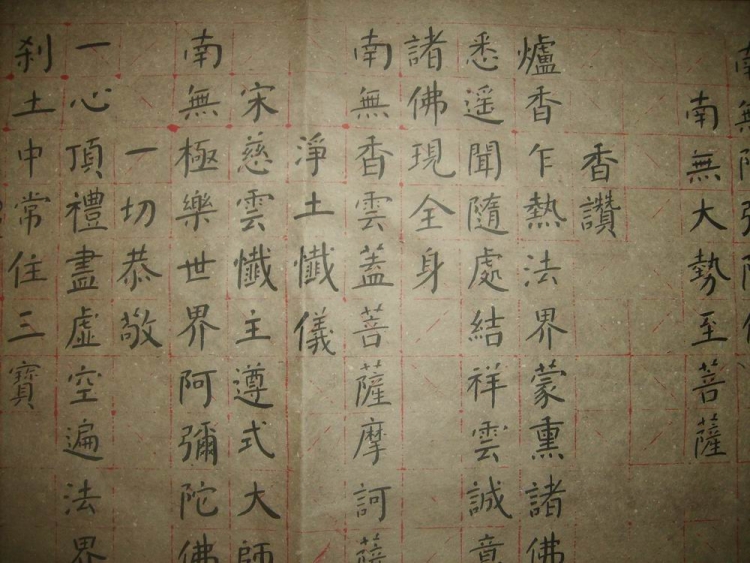 南無阿彌陀佛
南無大勢至菩薩
香讚
爐香乍熱法界蒙熏諸佛
悉遥聞隨處結祥雲誠意
諸佛現全身
南無香雲蓋菩薩摩訶薩
淨土懺儀
宋慈雲懺主遵式大師
南無極樂世界阿彌陀佛
一切恭敬
一心頂禮盡虛空遍法界
刹土中常住三寶